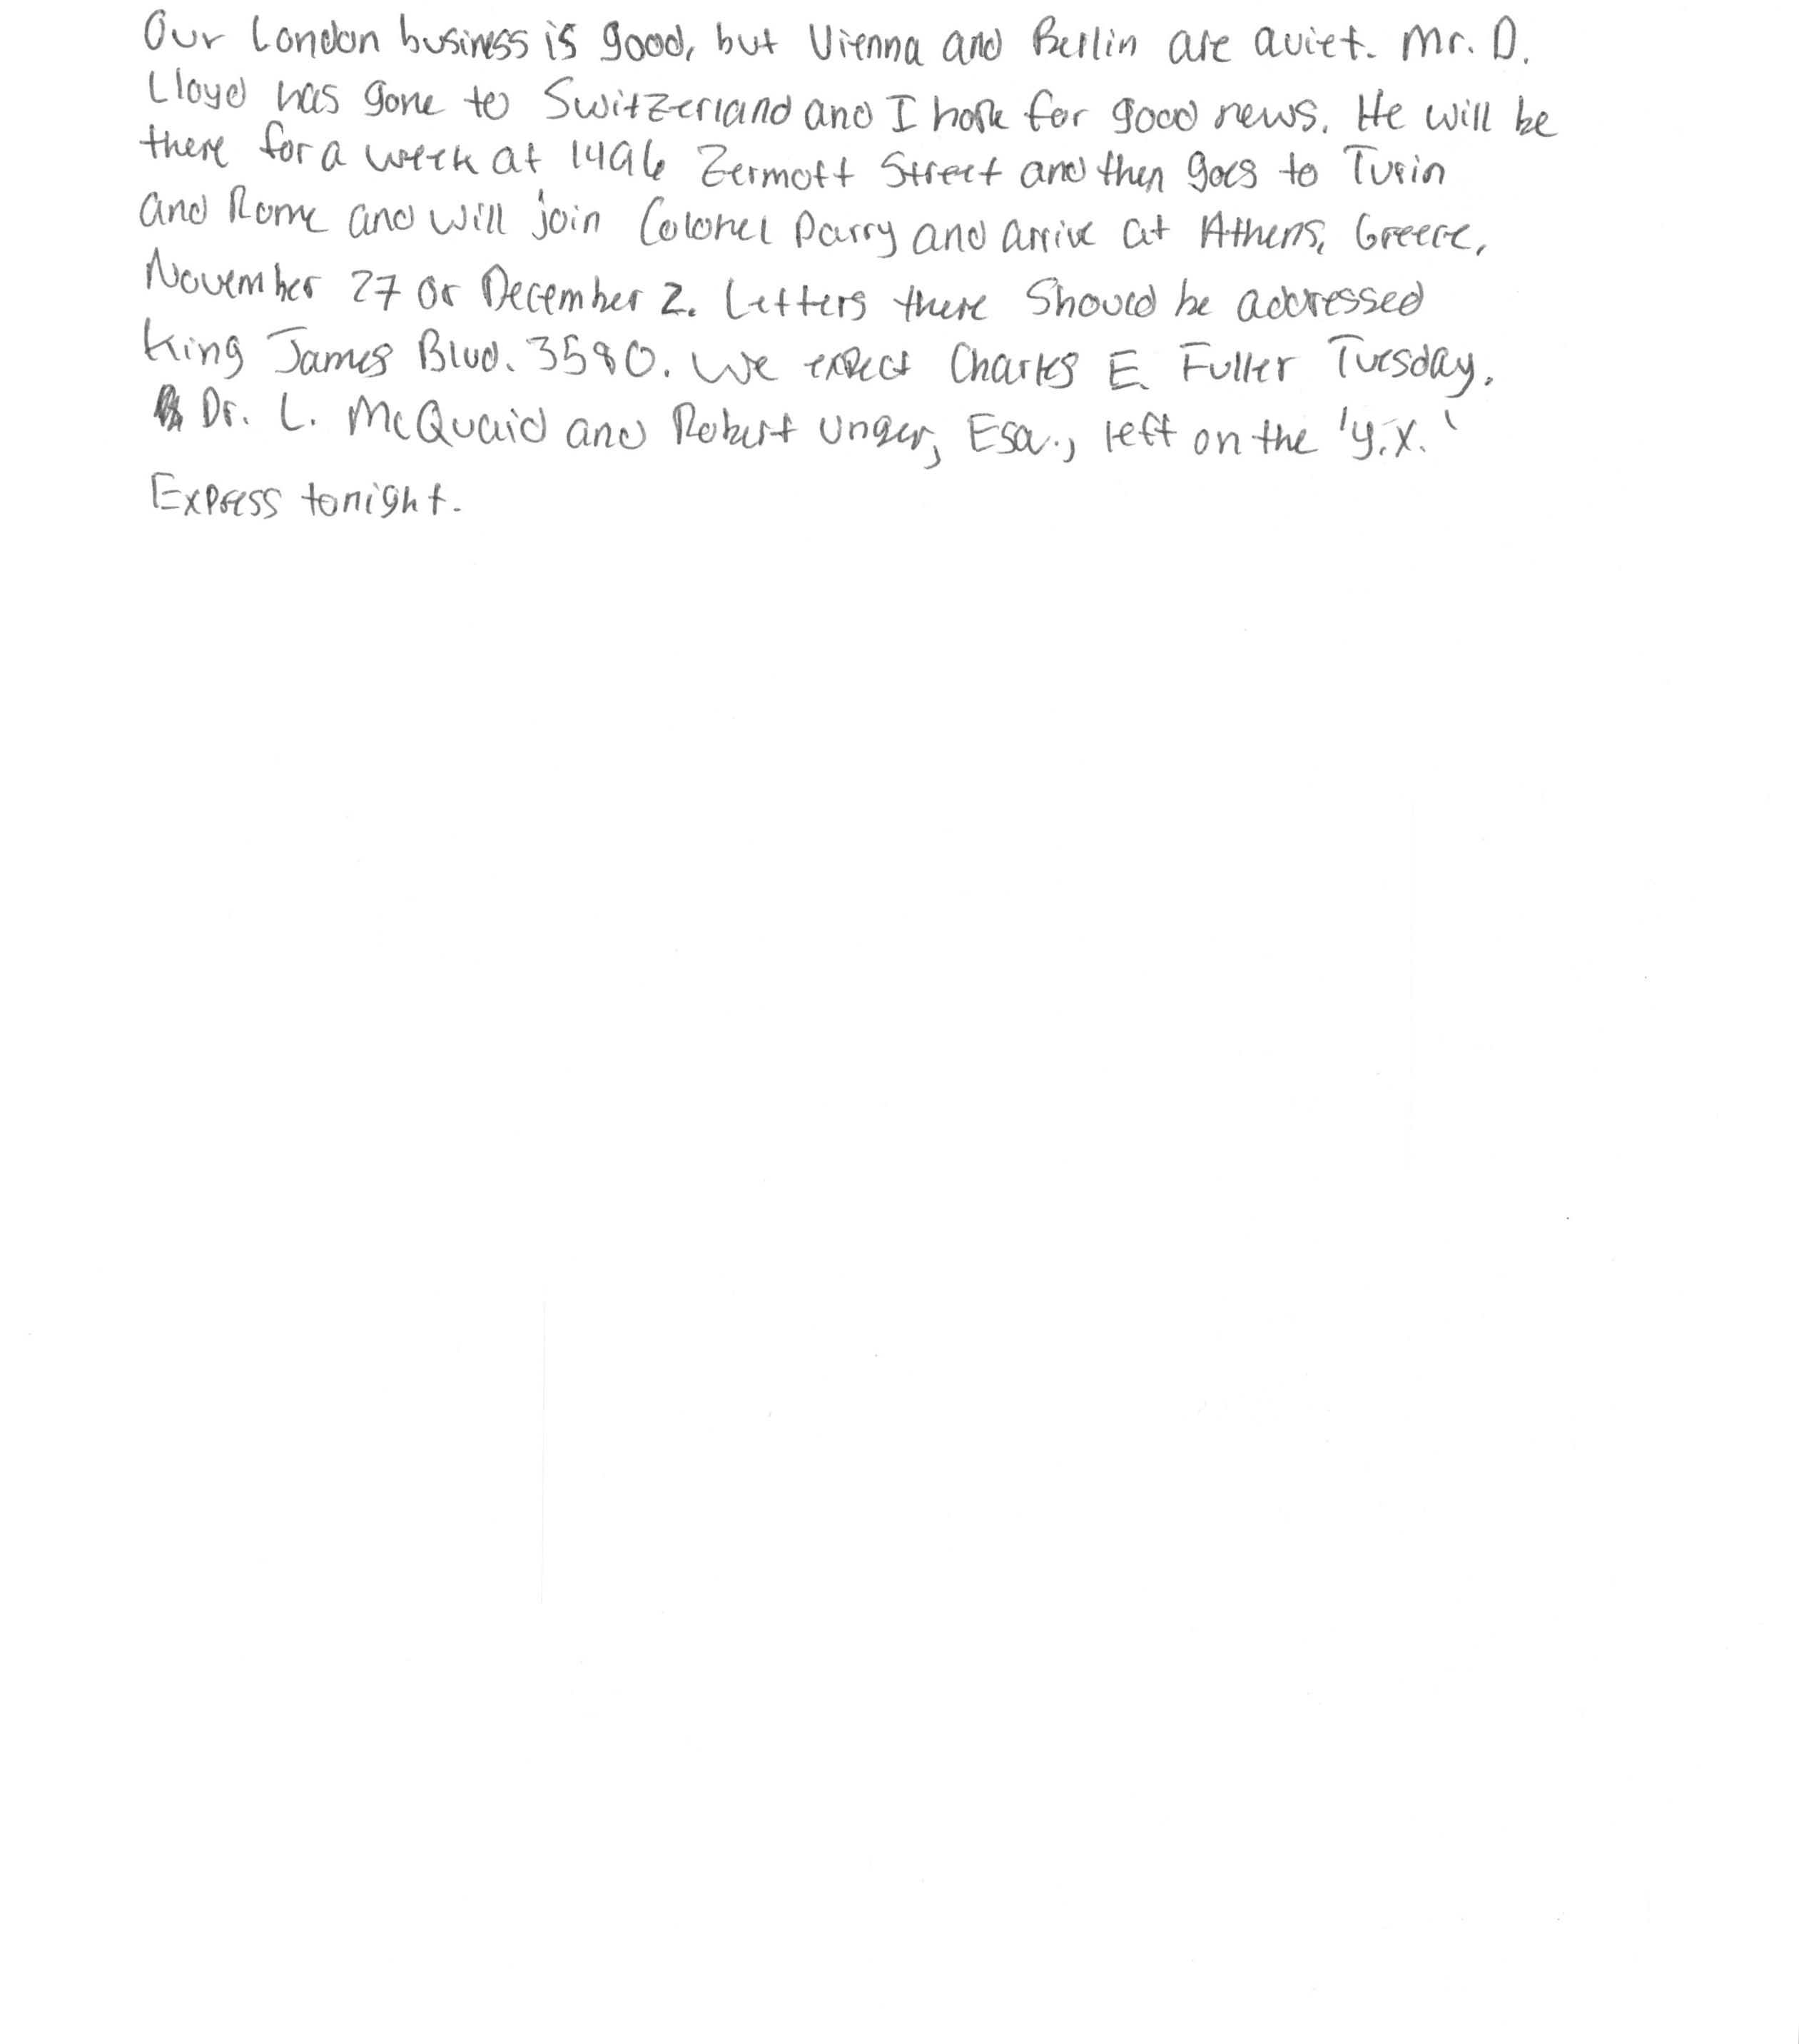 Our London business is good, but Vienna and Berlin are quiet. Mr. D.
Lloyd has gone to Switzerland and I hope for good news. He will be
there for a week at 1496 Zermott Street and then goes to Turin
and Rome and will join Colonel Parry and arrive at Athens, Greece,
November 27 or December 2. Letters there should be addressed
King James Blvd. 3580. We expect Charles E. Fuller Tuesday.
Dr. L. McQuaid and Robert Unger, Esq., left on the 'Y.X.'
Express tonight.